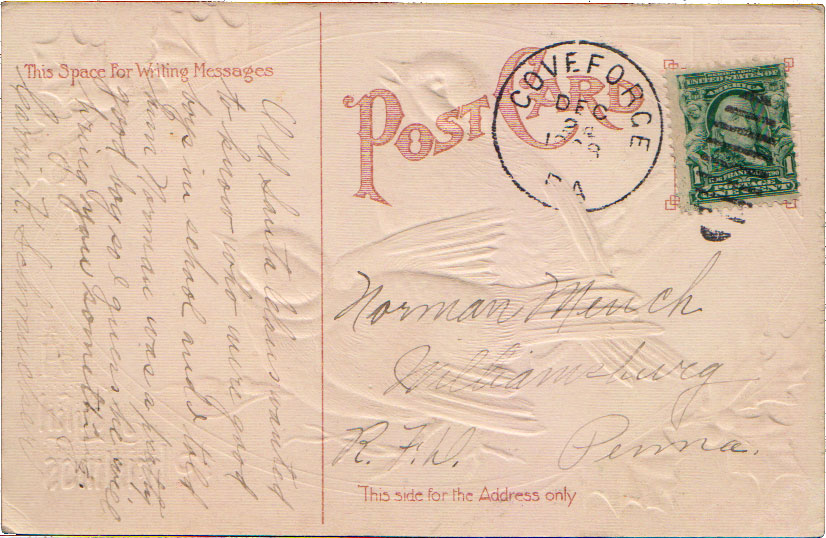 This Space For Writing Messages
POST CARD
COVEFORGE
DEC
PA
UNITED STATES OF
AMERICA
1
1
POSTAGE
ONE CENT
Old Santa Claus wanted
to know who were good
boys in school and I told
him Norman was a pretty
good boy so I guess he will
bring you something.
Norman Mench
Williamsburg
R. F. D. Penna.
This side for the Address only